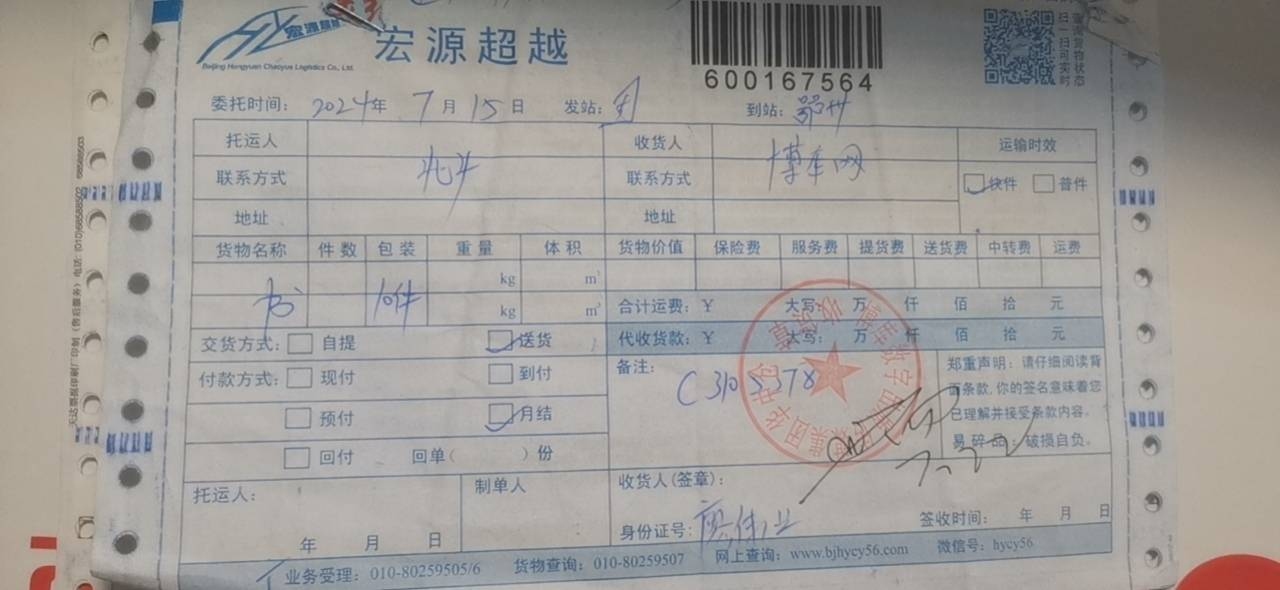 宏源超越
宏源超越
Beijing Hongyuan Chaoyue Logistics Co., Ltd.
600167564
扫一扫可实时
查询货物状态
委托时间: 2024年 7月 15日 发站: 到站: 鄂州
托运人 收货人 运输时效
联系方式 北斗 联系方式 博车网 快件 普件
地址 地址
货物名称 件数 包装 重量 体积 货物价值 保险费 服务费 提货费 送货费 中转费 运费
kg m³
书 10件 kg m³ 合计运费: ¥ 大写: 万 仟 佰 拾 元
交货方式: 自提 送货 代收货款: ¥ 大写: 万 仟 佰 拾 元
付款方式: 现付 到付 备注: 郑重声明: 请仔细阅读背
C3105378 面条款,你的签名意味着您
预付 月结 已理解并接受条款内容。
回付 回单( )份 易碎品: 破损自负。
托运人: 制单人 收货人(签章):
身份证号: 签收时间: 年 月 日
年 月 日
业务受理: 010-80259505/6 货物查询: 010-80259507 网上查询: www.bjhycy56.com 微信号: hycy56